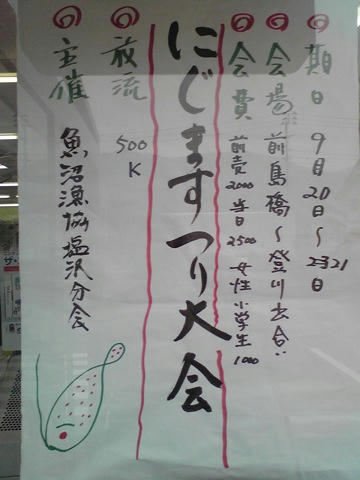 ◎期日 9月20日〜21日
◎会場 前島橋〜登川出合い
◎会費 前売2000 当日2500 女性小学生1000
にじますつり大会
◎放流 500K
◎主催 魚沼漁協塩沢分会